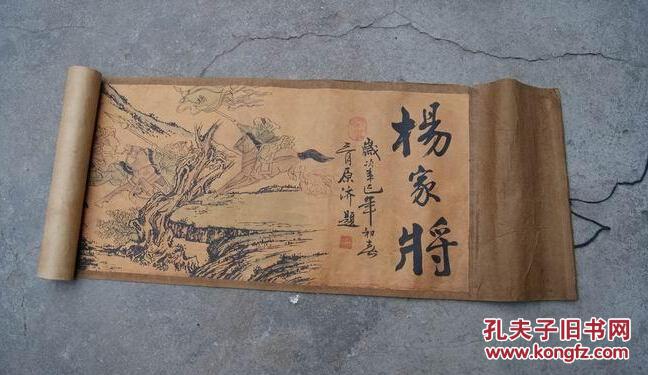 楊家將
歲次辛巳年初春
三月原济題
孔夫子旧书网
www.kongfz.com